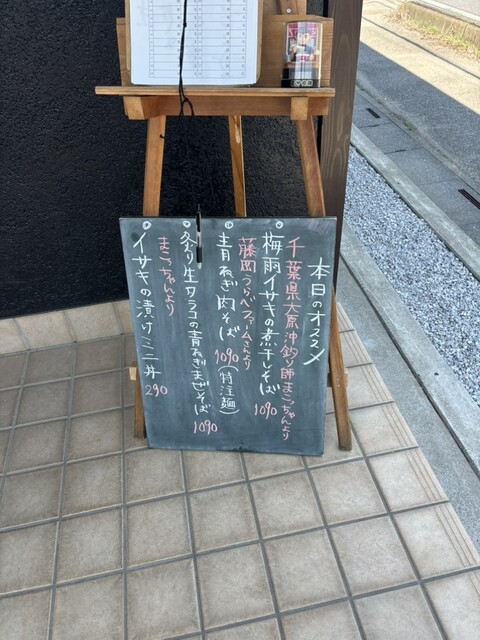 本日のオススメ
千葉県大原沖釣り師まこっちゃんより
梅雨イサキの煮干しそば
1090
藤岡うらべファームさんより
青ねぎ肉そば
1090(特注麺)
炙り生タラコの青ねぎまぜそば
1090
まこっちゃんより
イサキの漬けミニ丼
290